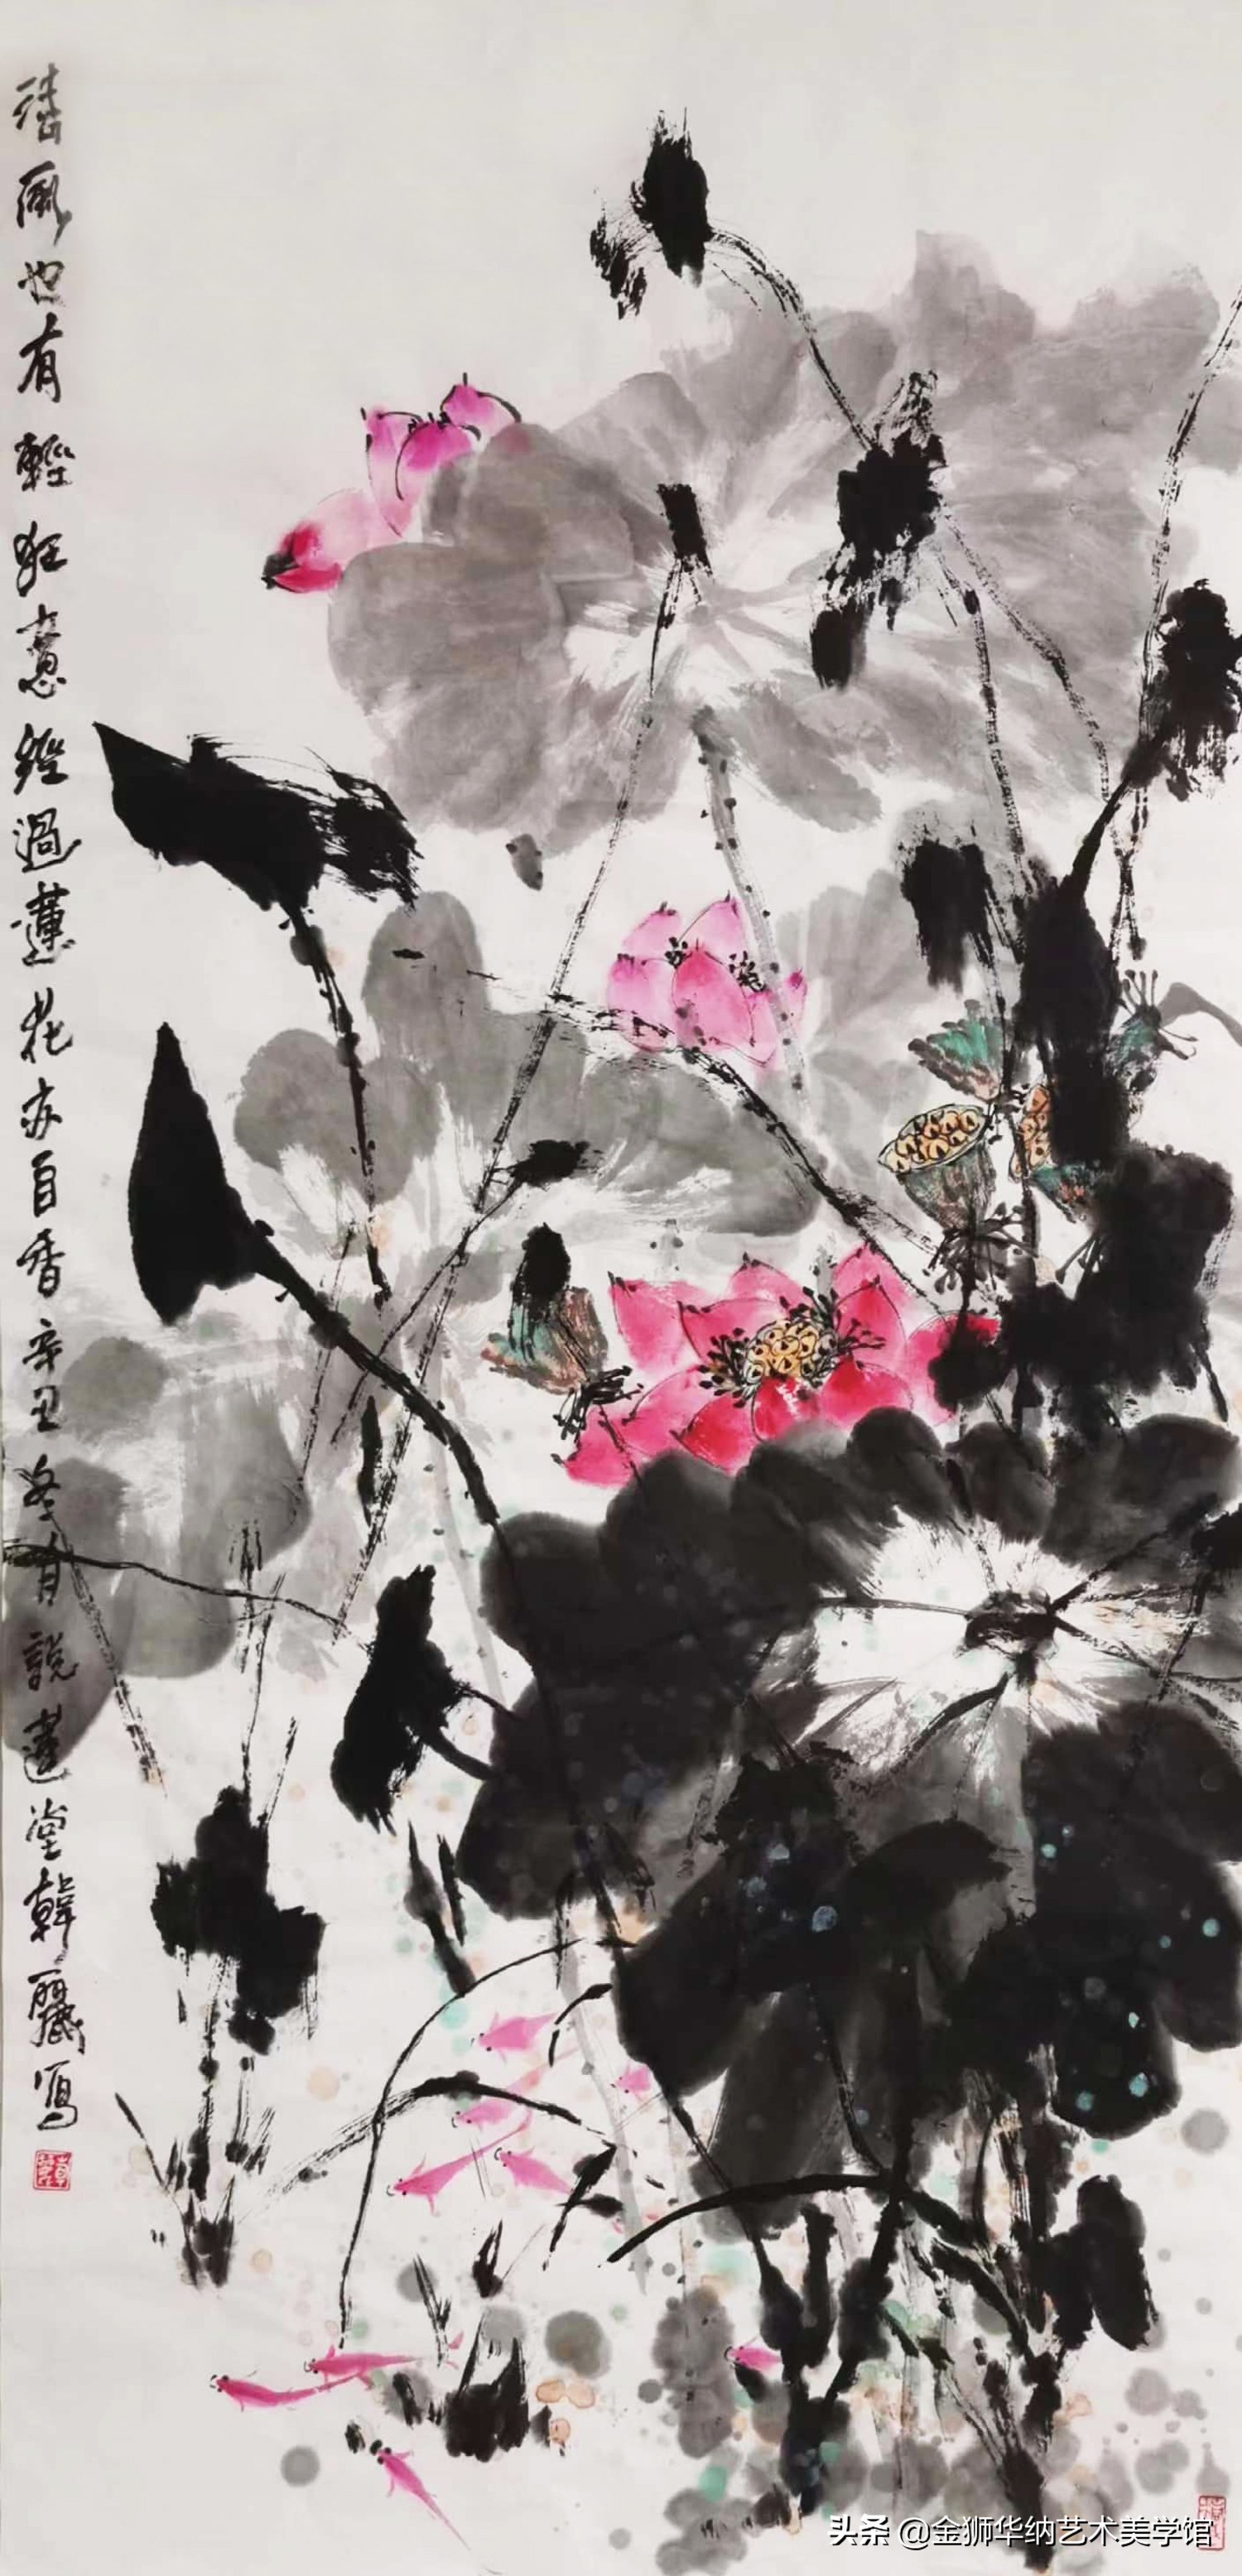 清風也有輕狂意經過蓮花亦自香辛丑冬月說蓮堂韓麗寫
头条 @金狮华纳艺术美学馆